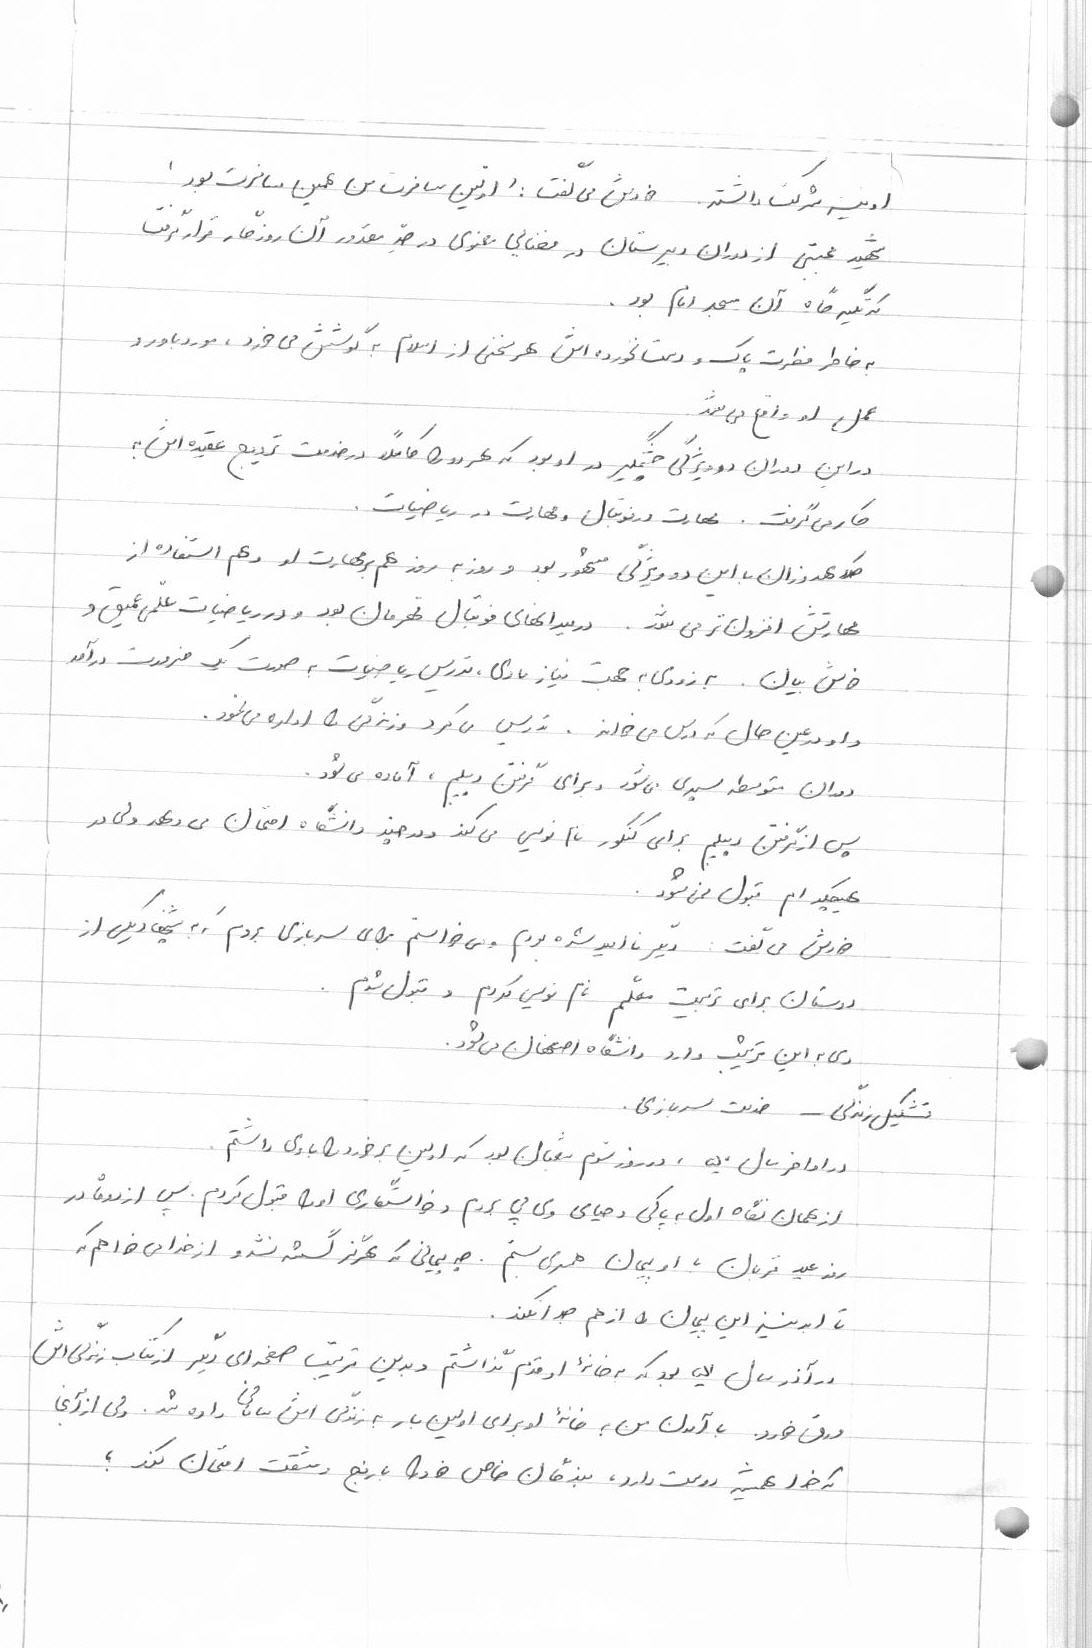 او نیز شرکت داشت. خودش می‌گفت: «اولین مسافرت من همین مسافرت بود»
شهید محبتی از دوران دبیرستان در فضایی معنوی در حدّ مقدور آن روزگار قرار گرفت
که تکیه گاه آن مسجد امام بود.
به خاطر فطرت پاک و دست نخورده اش هر سخنی از اسلام به گوشش می خورد، مورد باور و
عمل او واقع می شد.
در این دوران دو ویژگی چشمگیر در او بود که هر دو را کاملاً در خدمت ترویج عقیده اش به
کار می گرفت. مهارت در فوتبال و مهارت در ریاضیات.
با این دو ویژگی مشهور بود و روز به روز هم بر مهارت او و هم استفاده از
مهارتش افزون تر می شد. در میدانهای فوتبال قهرمان بود و در ریاضیات علمی عمیق و
خوش بیان. به زودی به جهت نیاز مادی، تدریس ریاضیات به صورت یک ضرورت درآمد
و او در عین حال که درس می خواند. تدریس می کرد و زندگی را اداره می نمود.
دوران متوسطه سپری می شود و برای گرفتن دیپلم، آماده می شود.
پس از گرفتن دیپلم برای کنکور نام نویسی می کند و در چند دانشگاه امتحان می دهد ولی در
هیچکدام قبول نمی شود.
خودش می گفت: دیگر ناامید شده بودم و می خواستم برای سربازی بروم که به یکی از
دوستان برای تربیت معلّم نام نویسی کردم و قبول شدم.
وی به این ترتیب وارد دانشگاه اصفهان می شود.
تشکیل زندگی - خدمت سربازی.
در اواخر سال ۵۰، در روز سوم شعبان بود که اولین برخورد را با وی داشتم.
از همان نگاه اول به پاکی و حیای وی پی بردم و خواستگاری او را قبول کردم. پس از مدتی در
روز عید قربان با او پیمان همسری بستم. چه پیمانی که هرگز گسسته نشد و از خدا می خواهم که
تا ابد نیز این پیمان را از هم جدا نکند.
در آذر سال ۵۱ بود که به خانهٔ او قدم گذاشتم و بدین ترتیب صفحه ای دیگر از کتاب زندگی اش
ورق خورد. با آمدن من به خانهٔ او برای اولین بار به زندگی اش سامانی داده شد. ولی از آنجا
که خدا همیشه دوست دارد، بندگان خاص خود را با رنج و مشقت امتحان کند؛